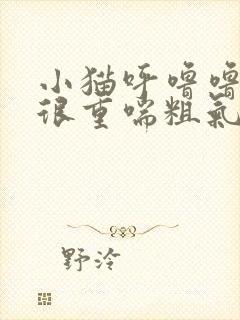 小猫呼噜噜
很重喘粗氣
野泠